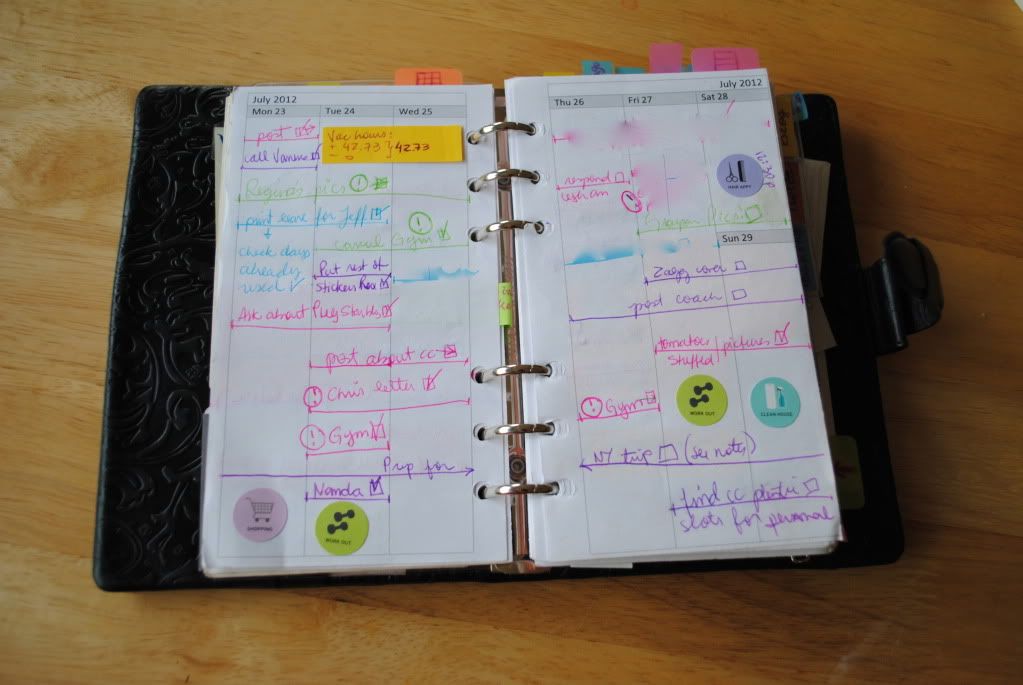 July 2012
Mon 23
Tue 24
Wed 25
post
Vac hours:
+ 42.73 } 42.73
- 0
call
pics
for Jeff
cancel Gym
check days
already
used
Put rest of
stickers
Ask about
post about cc
Chris letter
Gym
Prep for
SHOPPING
WORK OUT
July 2012
Thu 26
Fri 27
Sat 28
12:30p
HAIR APPT
respond
Groupon Pics
Sun 29
cover
post coach
tomatoes / pictures
stuffed
Gym
WORK OUT
CLEAN HOUSE
NY trip (see notes)
find cc
slots for personal